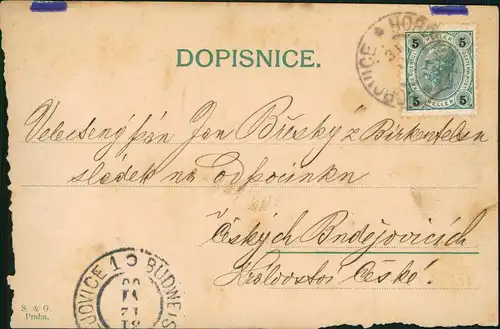 DOPISNICE.
HOŘOVICE
5 5
HELLER
5 5
Velectěný pán Jan Bušký z Birkenfelsu
sládek na odpočinku
Českých Budějovicích
Království České.
BUDWEIS
S. & G.
Praha.